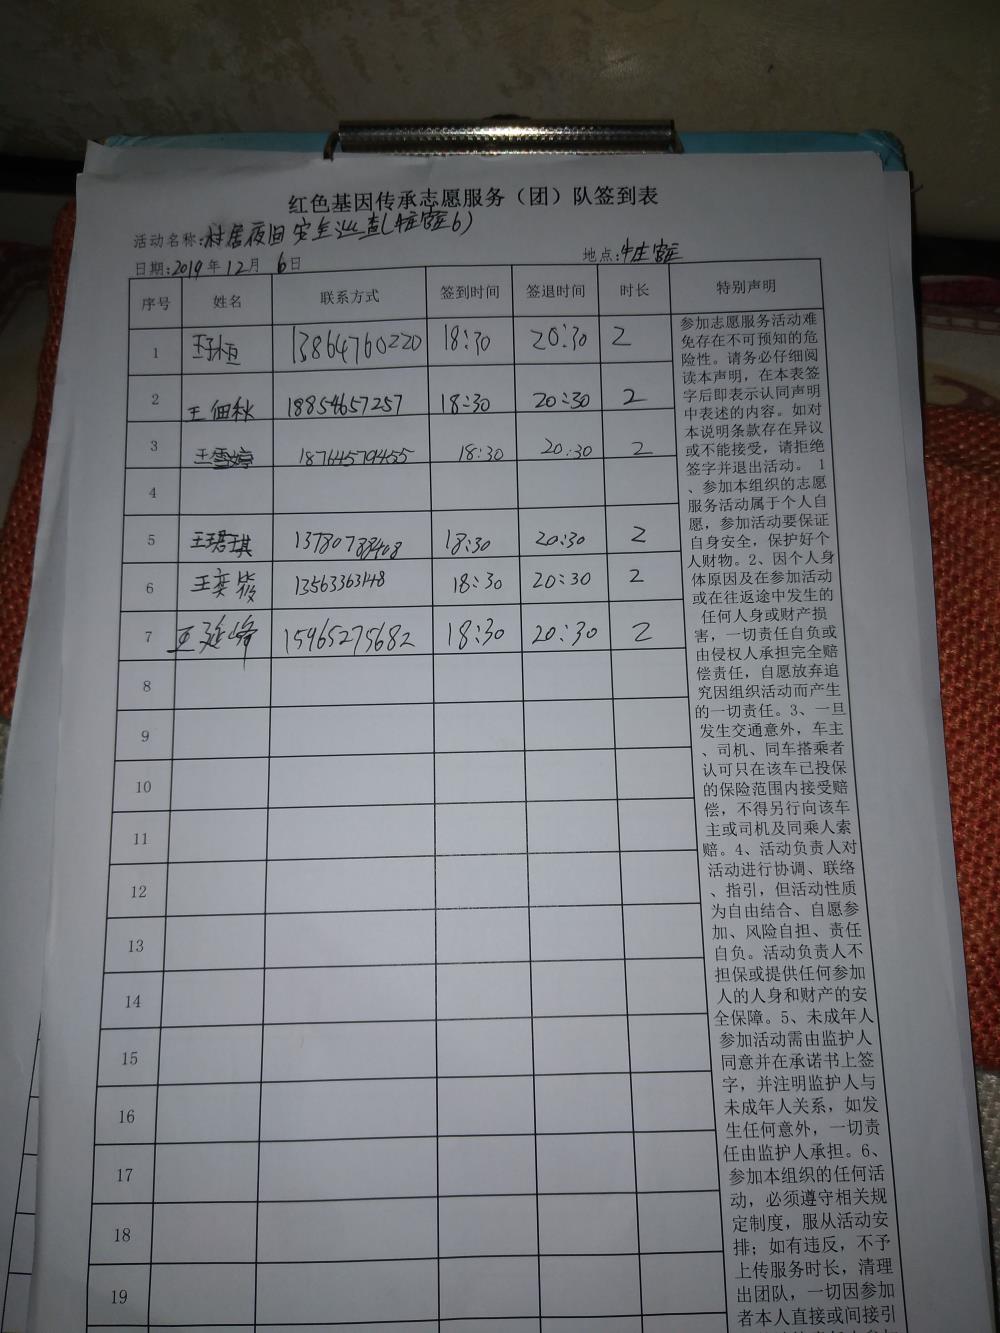 红色基因传承志愿服务（团）队签到表
活动名称:村居夜间安全巡查(牛庄官庄6)
日期:2019年12月6日 地点:牛庄官庄
序号 姓名 联系方式 签到时间 签退时间 时长 特别声明
1 13864760220 18:30 20:30 2
2 王佃秋 18854657257 18:30 20:30 2
3 王雪婷 18:30 20:30 2
4
5 王珺琪 18:30 20:30 2
6 王奕 13563363148 18:30 20:30 2
7 王延峰 15965275682 18:30 20:30 2
8
9
10
11
12
13
14
15
16
17
18
19
参加志愿服务活动难
免存在不可预知的危
险性。请务必仔细阅
读本声明，在本表签
字后即表示认同声明
中表述的内容。如对
本说明条款存在异议
或不能接受，请拒绝
签字并退出活动。 1
、参加本组织的志愿
服务活动属于个人自
愿，参加活动要保证
自身安全，保护好个
人财物。2、因个人身
体原因及在参加活动
或在往返途中发生的
任何人身或财产损
害，一切责任自负或
由侵权人承担完全赔
偿责任，自愿放弃追
究因组织活动而产生
的一切责任。3、一旦
发生交通意外，车主
、司机、同车搭乘者
认可只在该车已投保
的保险范围内接受赔
偿，不得另行向该车
主或司机及同乘人索
赔。4、活动负责人对
活动进行协调、联络
、指引，但活动性质
为自由结合、自愿参
加、风险自担、责任
自负。活动负责人不
担保或提供任何参加
人的人身和财产的安
全保障。5、未成年人
参加活动需由监护人
同意并在承诺书上签
字，并注明监护人与
未成年人关系，如发
生任何意外，一切责
任由监护人承担。6、
参加本组织的任何活
动，必须遵守相关规
定制度，服从活动安
排；如有违反，不予
上传服务时长，清理
出团队，一切因参加
者本人直接或间接引